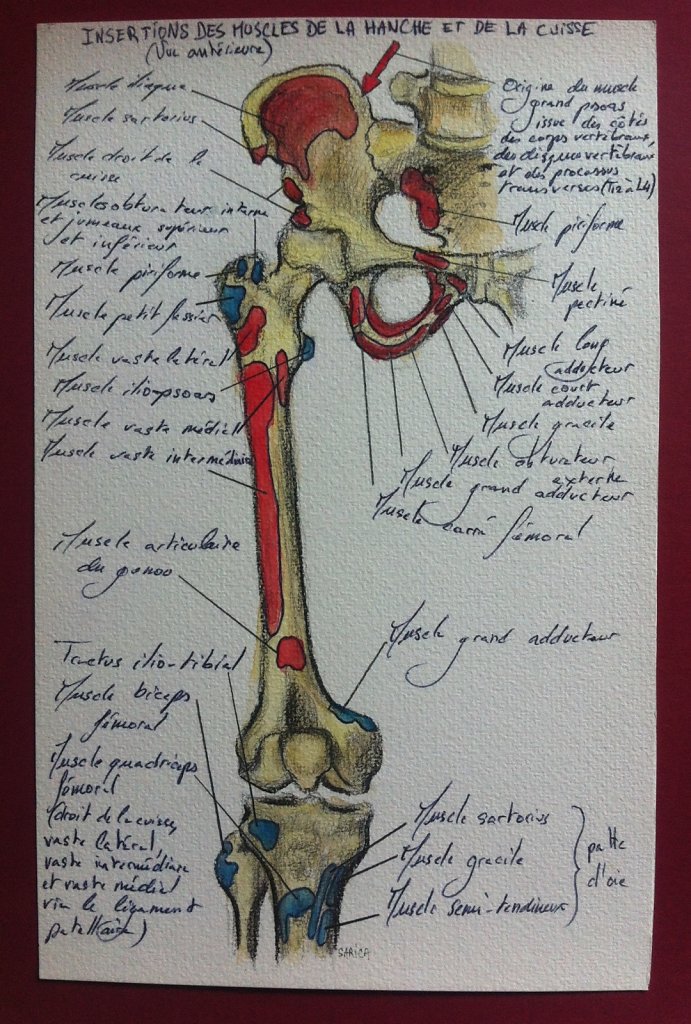 INSERTIONS DES MUSCLES DE LA HANCHE ET DE LA CUISSE
(Vue antérieure)
Muscle iliaque
Muscle sartorius
Muscle droit de la
cuisse
Muscles obturateur interne
et jumeaux supérieur
et inférieur
Muscle piriforme
Muscle petit fessier
Muscle vaste latéral
Muscle ilio-psoas
Muscle vaste médial
Muscle vaste intermédiaire
Muscle articulaire
du genou
Tractus ilio-tibial
Muscle biceps
fémoral
Muscle quadriceps
fémoral
(droit de la cuisse,
vaste latéral,
vaste intermédiaire
et vaste médial
via le ligament
patellaire)
Origine du muscle
grand psoas
issue des côtés
des corps vertébraux,
des disques vertébraux
et des processus
transverses (T12 à L4)
Muscle piriforme
Muscle
pectiné
Muscle long
adducteur
Muscle court
adducteur
Muscle gracile
Muscle obturateur
externe
Muscle grand adducteur
Muscle carré fémoral
Muscle grand adducteur
Muscle sartorius
Muscle gracile
Muscle semi-tendineux
patte
d'oie
SARICA